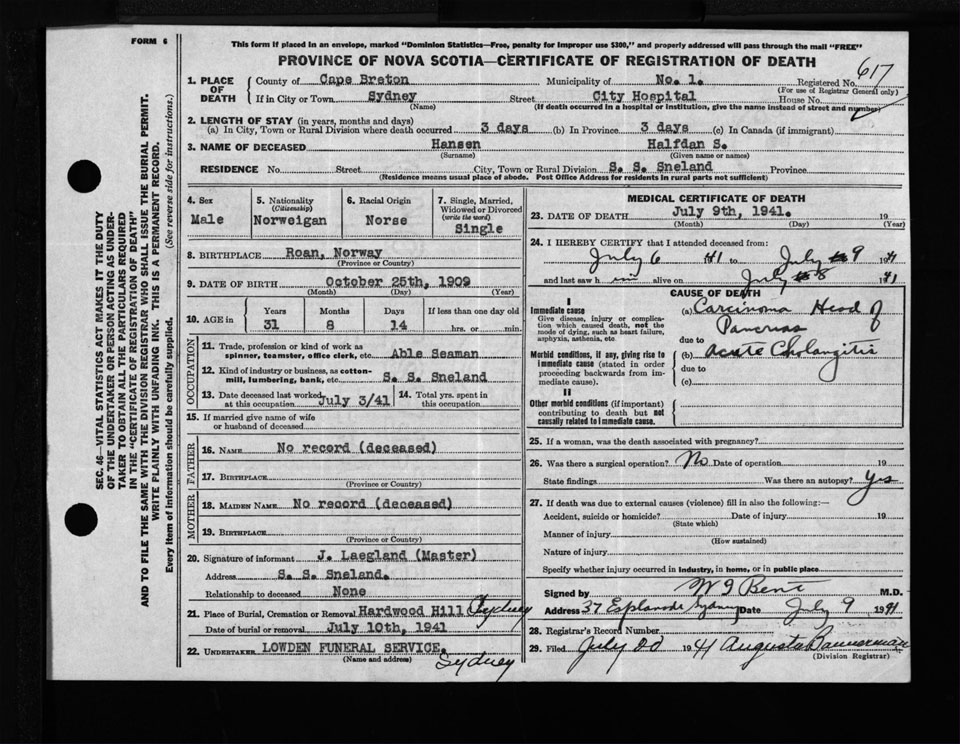 FORM 6
This form if placed in an envelope, marked "Dominion Statistics—Free, penalty for improper use $300," and properly addressed will pass through the mail "FREE"
PROVINCE OF NOVA SCOTIA—CERTIFICATE OF REGISTRATION OF DEATH
SEC. 46—VITAL STATISTICS ACT MAKES IT THE DUTY
OF THE UNDERTAKER OR PERSON ACTING AS UNDER-
TAKER TO OBTAIN ALL THE PARTICULARS REQUIRED
IN THE "CERTIFICATE OF REGISTRATION OF DEATH"
AND TO FILE THE SAME WITH THE DIVISION REGISTRAR WHO SHALL ISSUE THE BURIAL PERMIT.
WRITE PLAINLY WITH UNFADING INK. THIS IS A PERMANENT RECORD.
Every item of information should be carefully supplied. (See reverse side for instructions.)
1. PLACE OF DEATH County of Cape Breton Municipality of No. 1. Registered No. 617
(For use of Registrar General only)
If in City or Town Sydney Street City Hospital House No.
(Name) (If death occurred in a hospital or institution, give the name instead of street and number)
2. LENGTH OF STAY (in years, months and days)
(a) In City, Town or Rural Division where death occurred 3 days (b) In Province 3 days (c) In Canada (if immigrant)
3. NAME OF DECEASED Hansen Halfdan S.
(Surname) (Given name or names)
RESIDENCE No. Street City, Town or Rural Division S. S. Sneland Province
(Residence means usual place of abode. Post Office Address for residents in rural parts not sufficient)
4. Sex Male
5. Nationality (Citizenship) Norweigan
6. Racial Origin Norse
7. Single, Married, Widowed or Divorced (write the word) Single
8. BIRTHPLACE Roan, Norway
(Province or Country)
9. DATE OF BIRTH October 25th, 1909
(Month) (Day) (Year)
10. AGE in Years Months Days If less than one day old
31 8 14 hrs. or min.
OCCUPATION
11. Trade, profession or kind of work as
spinner, teamster, office clerk, etc. Able Seaman
12. Kind of industry or business, as cotton-
mill, lumbering, bank, etc. S. S. Sneland
13. Date deceased last worked at this occupation July 3/41 14. Total yrs. spent in this occupation
15. If married give name of wife
or husband of deceased
FATHER
16. NAME No record (deceased)
17. BIRTHPLACE
(Province or Country)
MOTHER
18. MAIDEN NAME No record (deceased)
19. BIRTHPLACE
(Province or Country)
20. Signature of informant J. Laegland (Master)
Address S. S. Sneland.
Relationship to deceased None
21. Place of Burial, Cremation or Removal Hardwood Hill Sydney
Date of burial or removal July 10th, 1941
22. UNDERTAKER LOWDEN FUNERAL SERVICE. Sydney
(Name and address)
MEDICAL CERTIFICATE OF DEATH
23. DATE OF DEATH July 9th, 1941. 19
(Month) (Day) (Year)
24. I HEREBY CERTIFY that I attended deceased from:
July 6 41 to July 9 1941
and last saw him alive on July 8 41
CAUSE OF DEATH
I
Immediate cause
Give disease, injury or complica-
tion which caused death, not the
mode of dying, such as heart failure,
asphyxia, asthenia, etc.
(a) Carcinoma Head of
Pancreas
due to
Morbid conditions, if any, giving rise to
immediate cause (stated in order
proceeding backwards from im-
mediate cause).
(b) Acute Cholangitis
due to
(c)
II
Other morbid conditions (if important)
contributing to death but not
causally related to immediate cause.
25. If a woman, was the death associated with pregnancy?
26. Was there a surgical operation? No Date of operation 19
State findings Was there an autopsy? Yes
27. If death was due to external causes (violence) fill in also the following:—
Accident, suicide or homicide? Date of injury 19
(State which)
Manner of injury
(How sustained)
Nature of injury
Specify whether injury occurred in industry, in home, or in public place
Signed by W J Bent M.D.
Address 37 Esplanade Sydney Date July 9 1941
28. Registrar's Record Number
29. Filed July 1941 Augusta Bannerman
(Division Registrar)